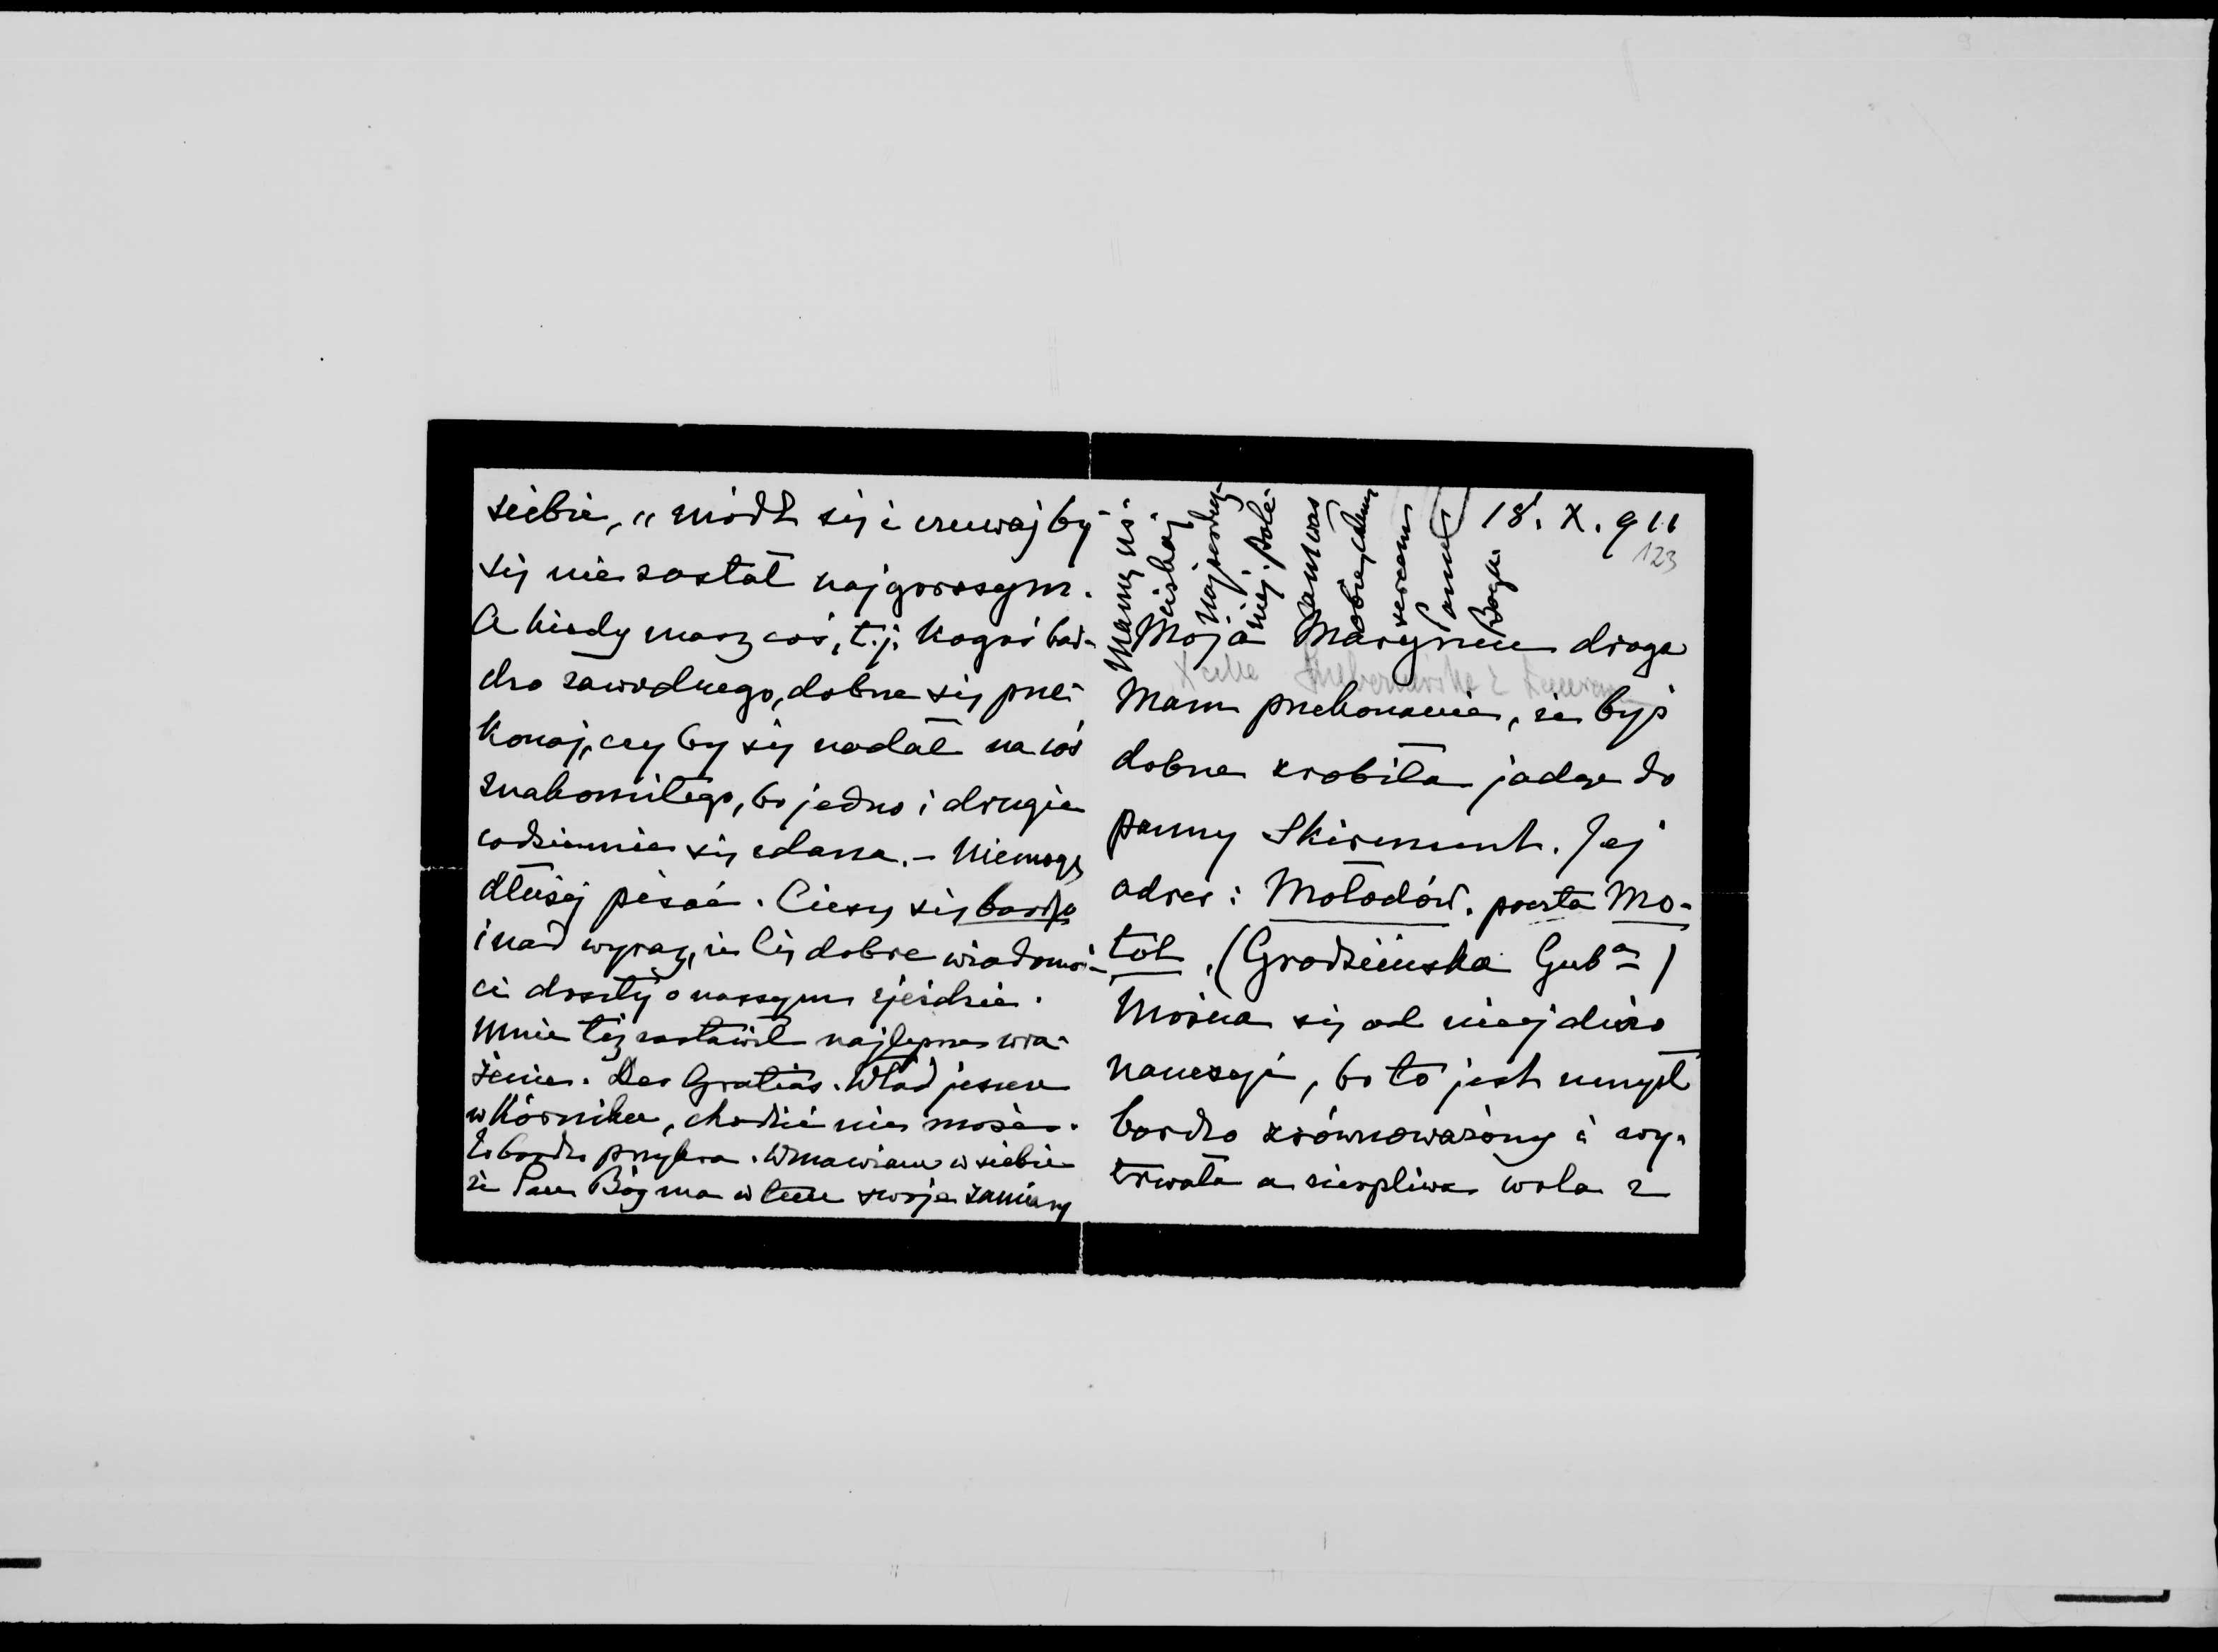 siebie, „módl się i czuwaj by
się nie został najgorszym.
A kiedy masz coś, t.j. kogoś bar-
dzo zawodnego, dobrze się prze-
konaj, czy by się nadał na coś
znakomitego, bo jedno i drugie
codziennie się zdarza. – Niemogę
dłużej pisać. Cieszę się bardzo
i nad wyraz, że Cię dobre wiadomoś-
ci doszły o naszym zjeździe.
Mnie też zostawił najlepsze wra-
żenie. Deo Gratias. Wład jeszcze
w Kórniku, chodzić nie może.
To bardzo przykre. Wmawiam w siebie
że Pan Bóg ma w tem swoje zamiary
18. X. 911
123
Mamę uś-
ciskaj
najserdecz-
niej. Pole-
cam was
dobrym
sercem
Panu
Bogu
Moja Maryniu droga
Mam przekonanie, że byś
dobrze zrobiła jadąc do
panny Skirmunt. Jej
adres: Mołodów. poczta Mo-
tol. (Grodzieńska Gubª)
Można się od niej dużo
nauczyć, bo to jest umysł
bardzo zrównoważony i wy-
trwała a cierpliwa wola z